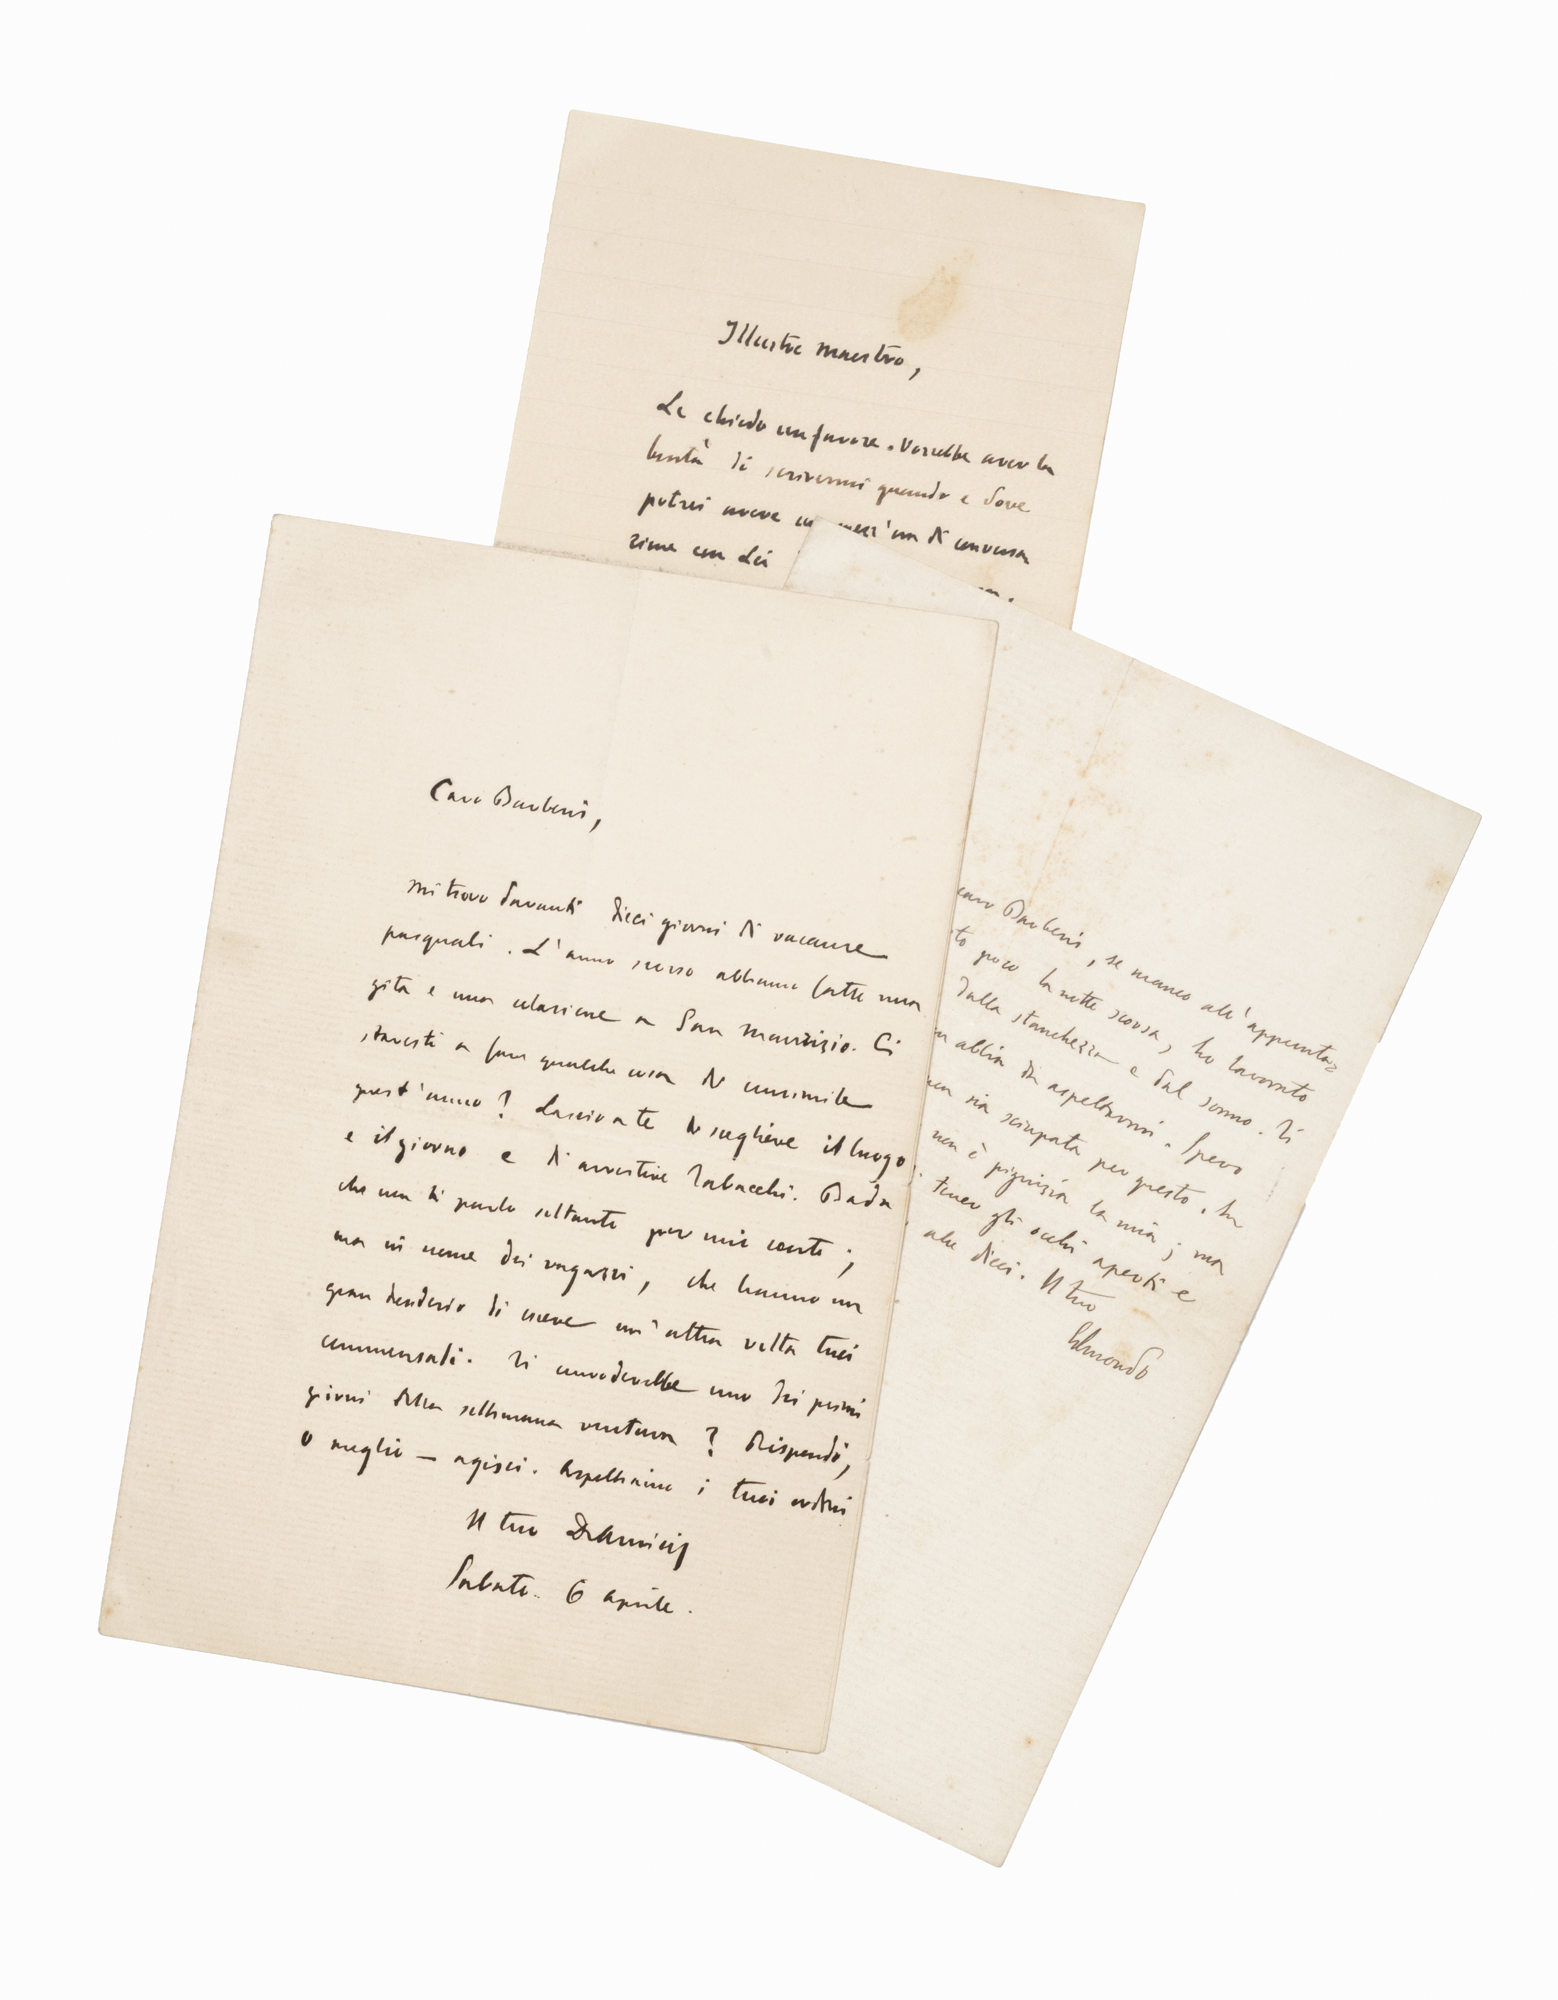 Illustre maestro,
Le chiedo un favore. Vorrebbe aver la
bontà di scrivermi quando e dove
potrei avere un mezz'ora di conversa
zione con Lei
Caro Barberis,
mi trovo davanti dieci giorni di vacanze
pasquali. L'anno scorso abbiamo fatto una
gita e una colazione a San Maurizio. Ci
staresti a fare qualche cosa di consimile
quest'anno? Lascio a te di scegliere il luogo
e il giorno e d'avvertire Tabacchi. Bada
che non ti parlo soltanto per mio conto;
ma in nome dei ragazzi, che hanno un
gran desiderio di essere un'altra volta tuoi
commensali. Ti accomoderebbe uno dei primi
giorni della settimana ventura? Rispondi,
o meglio — agisci. Aspettiamo i tuoi ordini
Il tuo DeAmicis
Sabato. 6 aprile.
caro Barberis, se manco all'appunta=
to poco la notte scorsa, ho lavorato
dalla stanchezza e dal sonno. Ti
abbia da aspettarmi. Spero
non sia sciupata per questo.
non è pigrizia la mia; ma
tener gli occhi aperti e
alle dieci. Il tuo
Edmondo